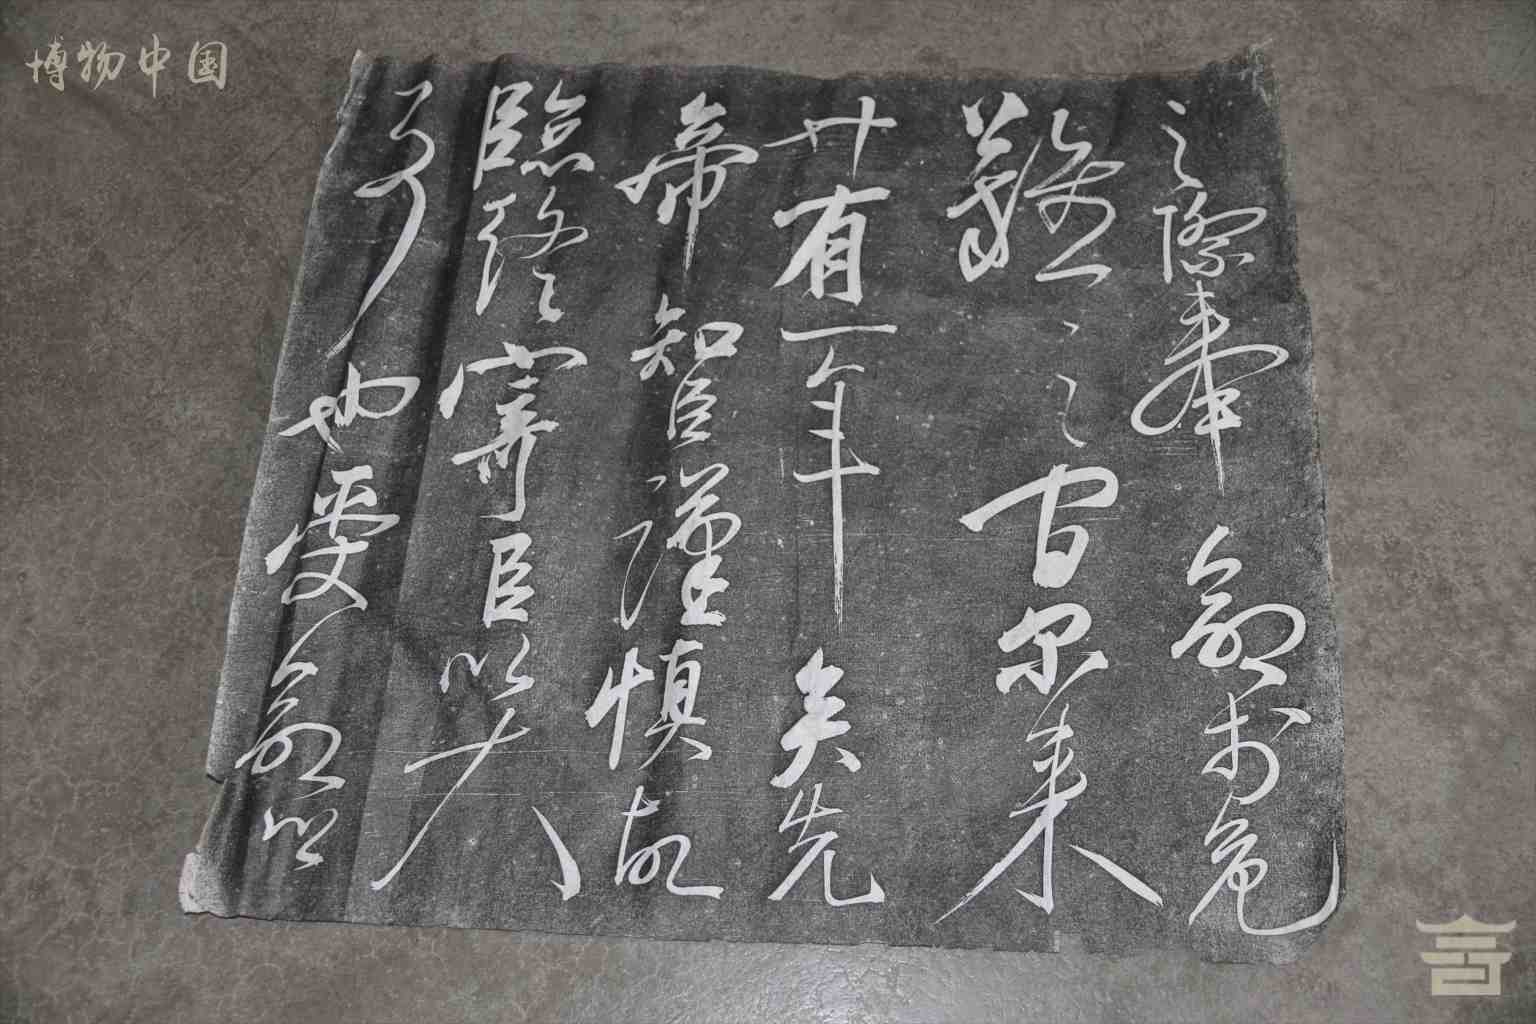 博物中国
之際奉命於危
難之間尔来
廿有一年矣先
帝知臣謹慎故
臨終寄臣以大
事也受命以